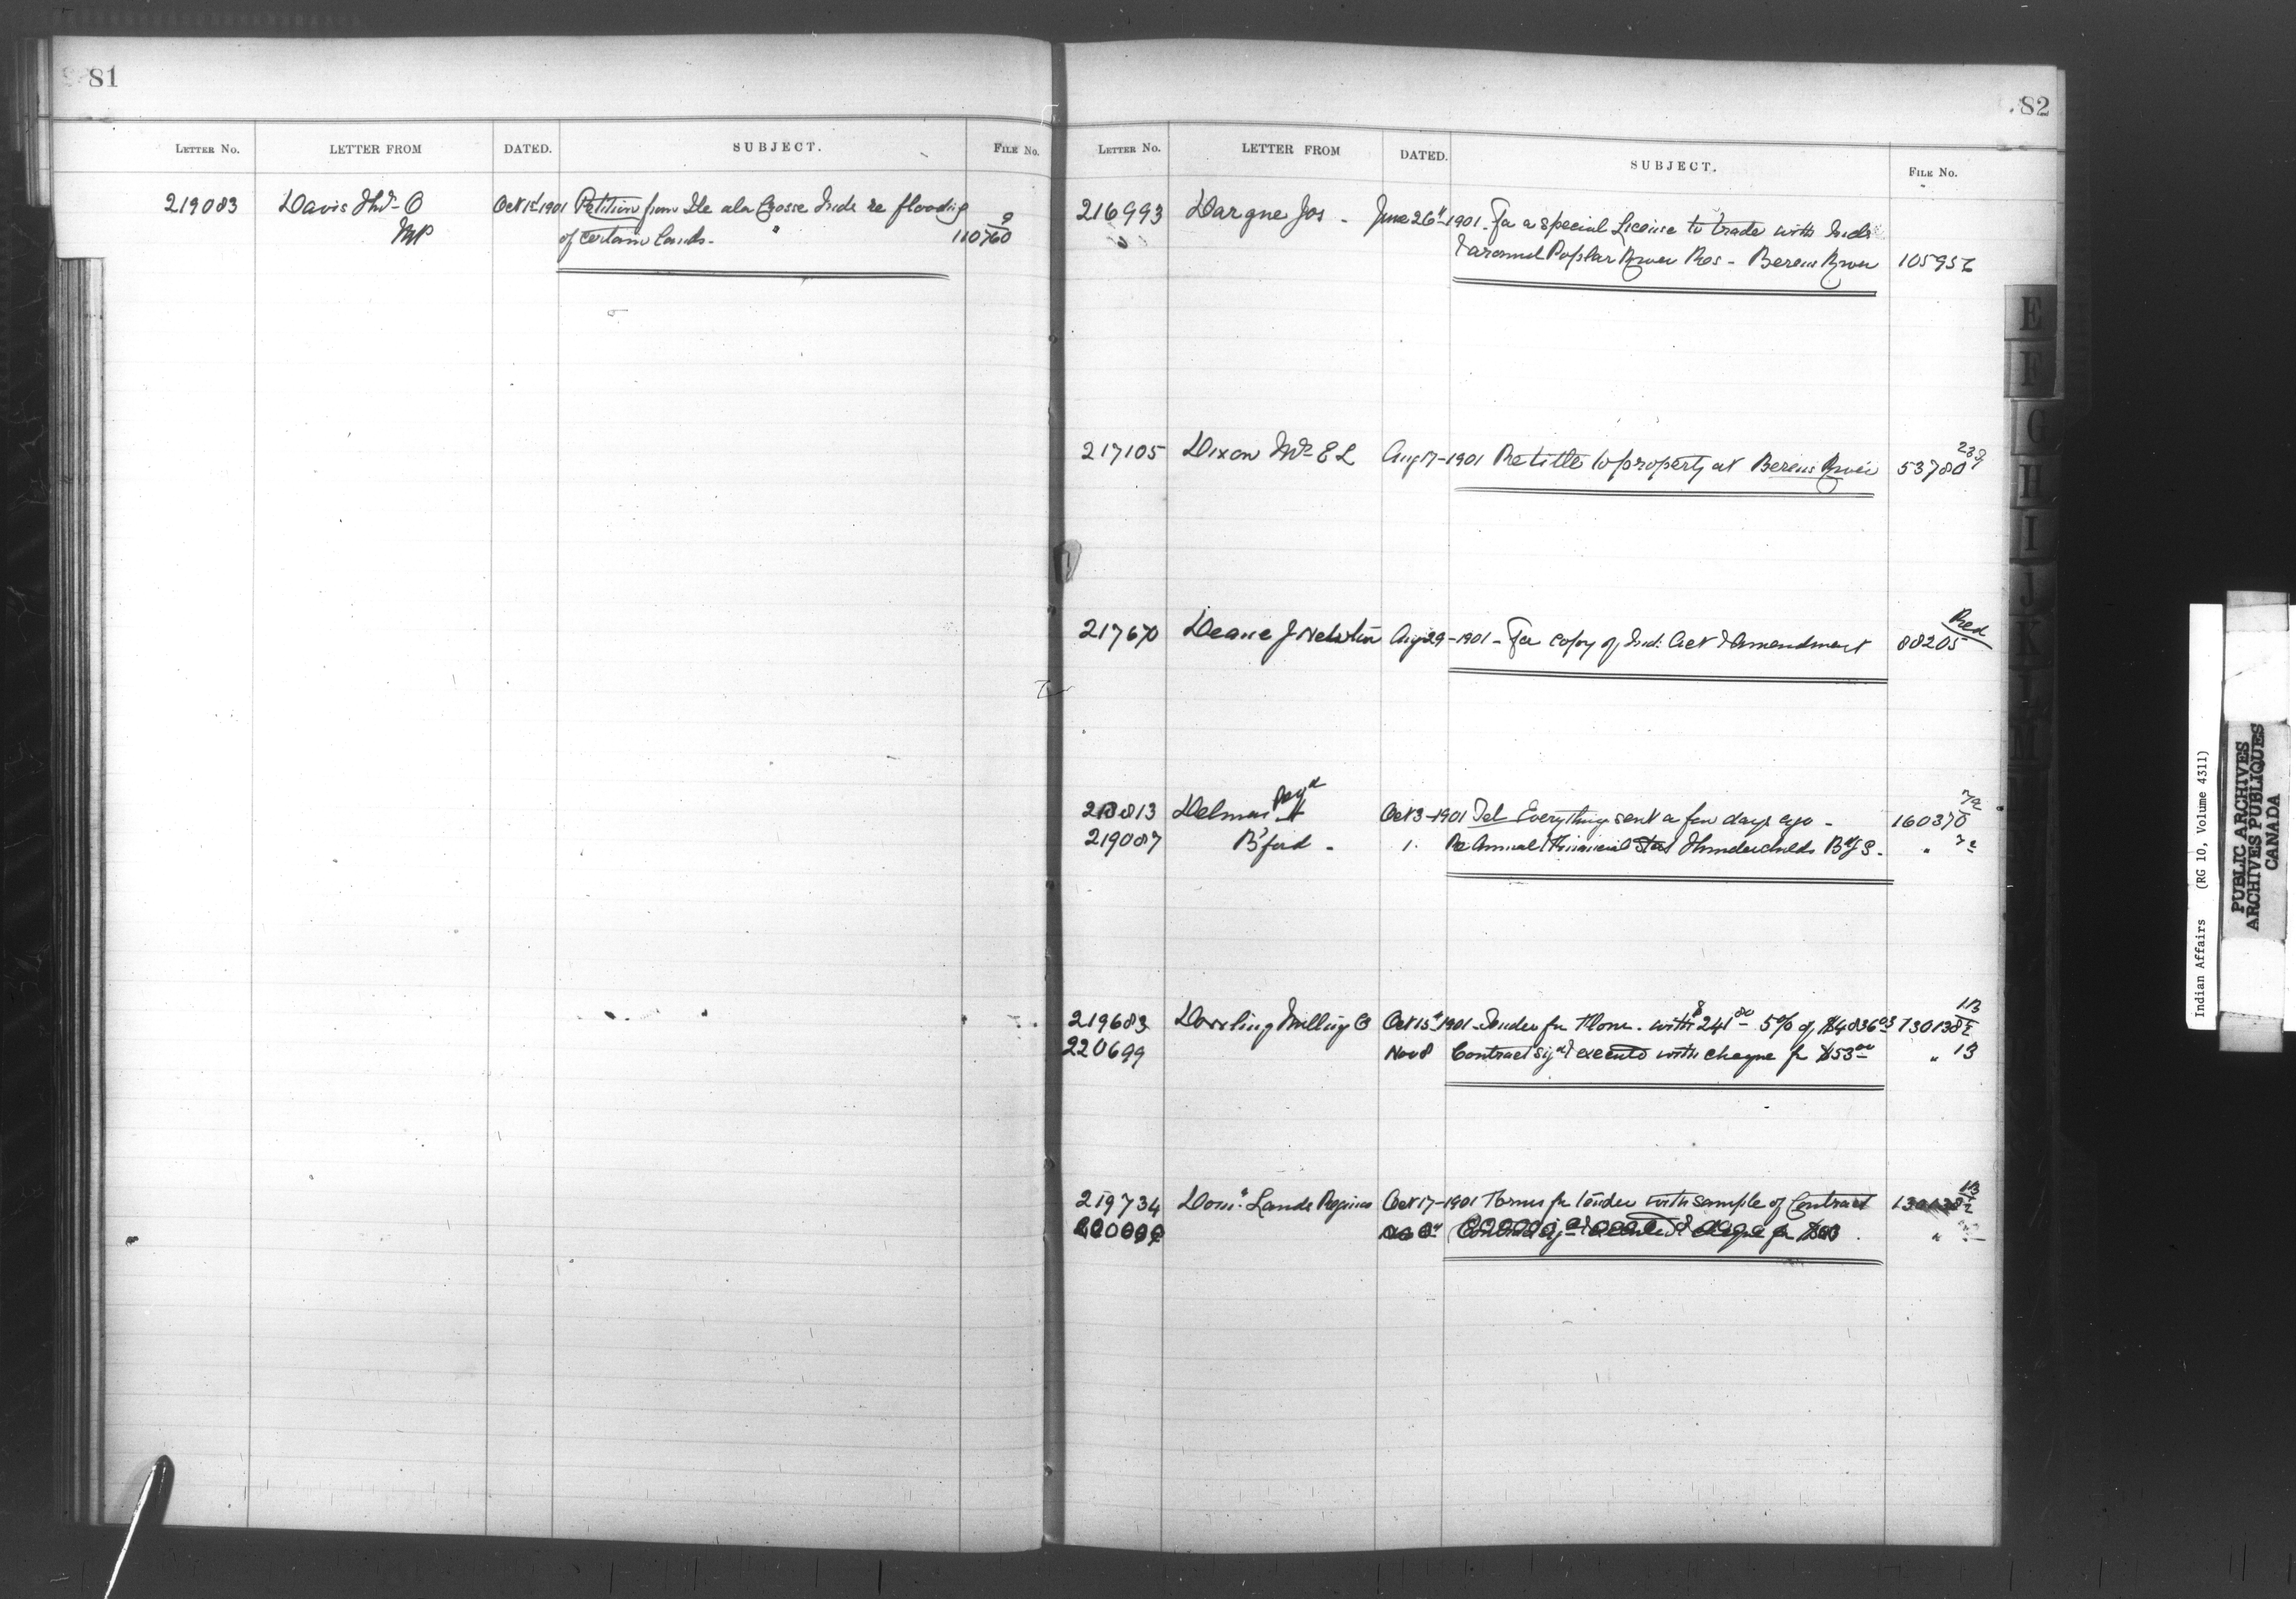 81
LETTER No. LETTER FROM DATED. SUBJECT. FILE No.
219083 Davis Thos. O Oct 1st 1901 Petition from Ile ala Crosse Inds re flooding 9
MP of certain lands. 110760
82
LETTER No. LETTER FROM DATED. SUBJECT. FILE No.
216993 Dargne Jos - June 26" 1901 - For a special License to trade with Inds
& around Poplar River Res - Berens River 105956
217105 Dixon E L Aug 17-1901 Re title to property at Berens River 53780
217670 Deane J Aug 29-1901 - For copy of Ind. Act & Amendment 88205 Red
Delmas
218813 Oct 3-1901 Tel Everything sent a few days ago - 160370
219087 B'ford - 1. Re Annual & Financial Thunderchilds Bdg S. "
219683 Darling Milling Co Oct 15" 1901 - Tender for Flour. with $241 80 5% of $4836 130138 1/2 13
220699 Nov 8 Contract sigd & executed with cheque for $53 00 " 13
219734 Dom. Lands Regina Oct 17-1901 Forms for tender with sample of Contract 130138 1/2 13
E
F
G
H
I
J
K
L
M
Indian Affairs (RG 10, Volume 4311)
PUBLIC ARCHIVES
ARCHIVES PUBLIQUES
CANADA